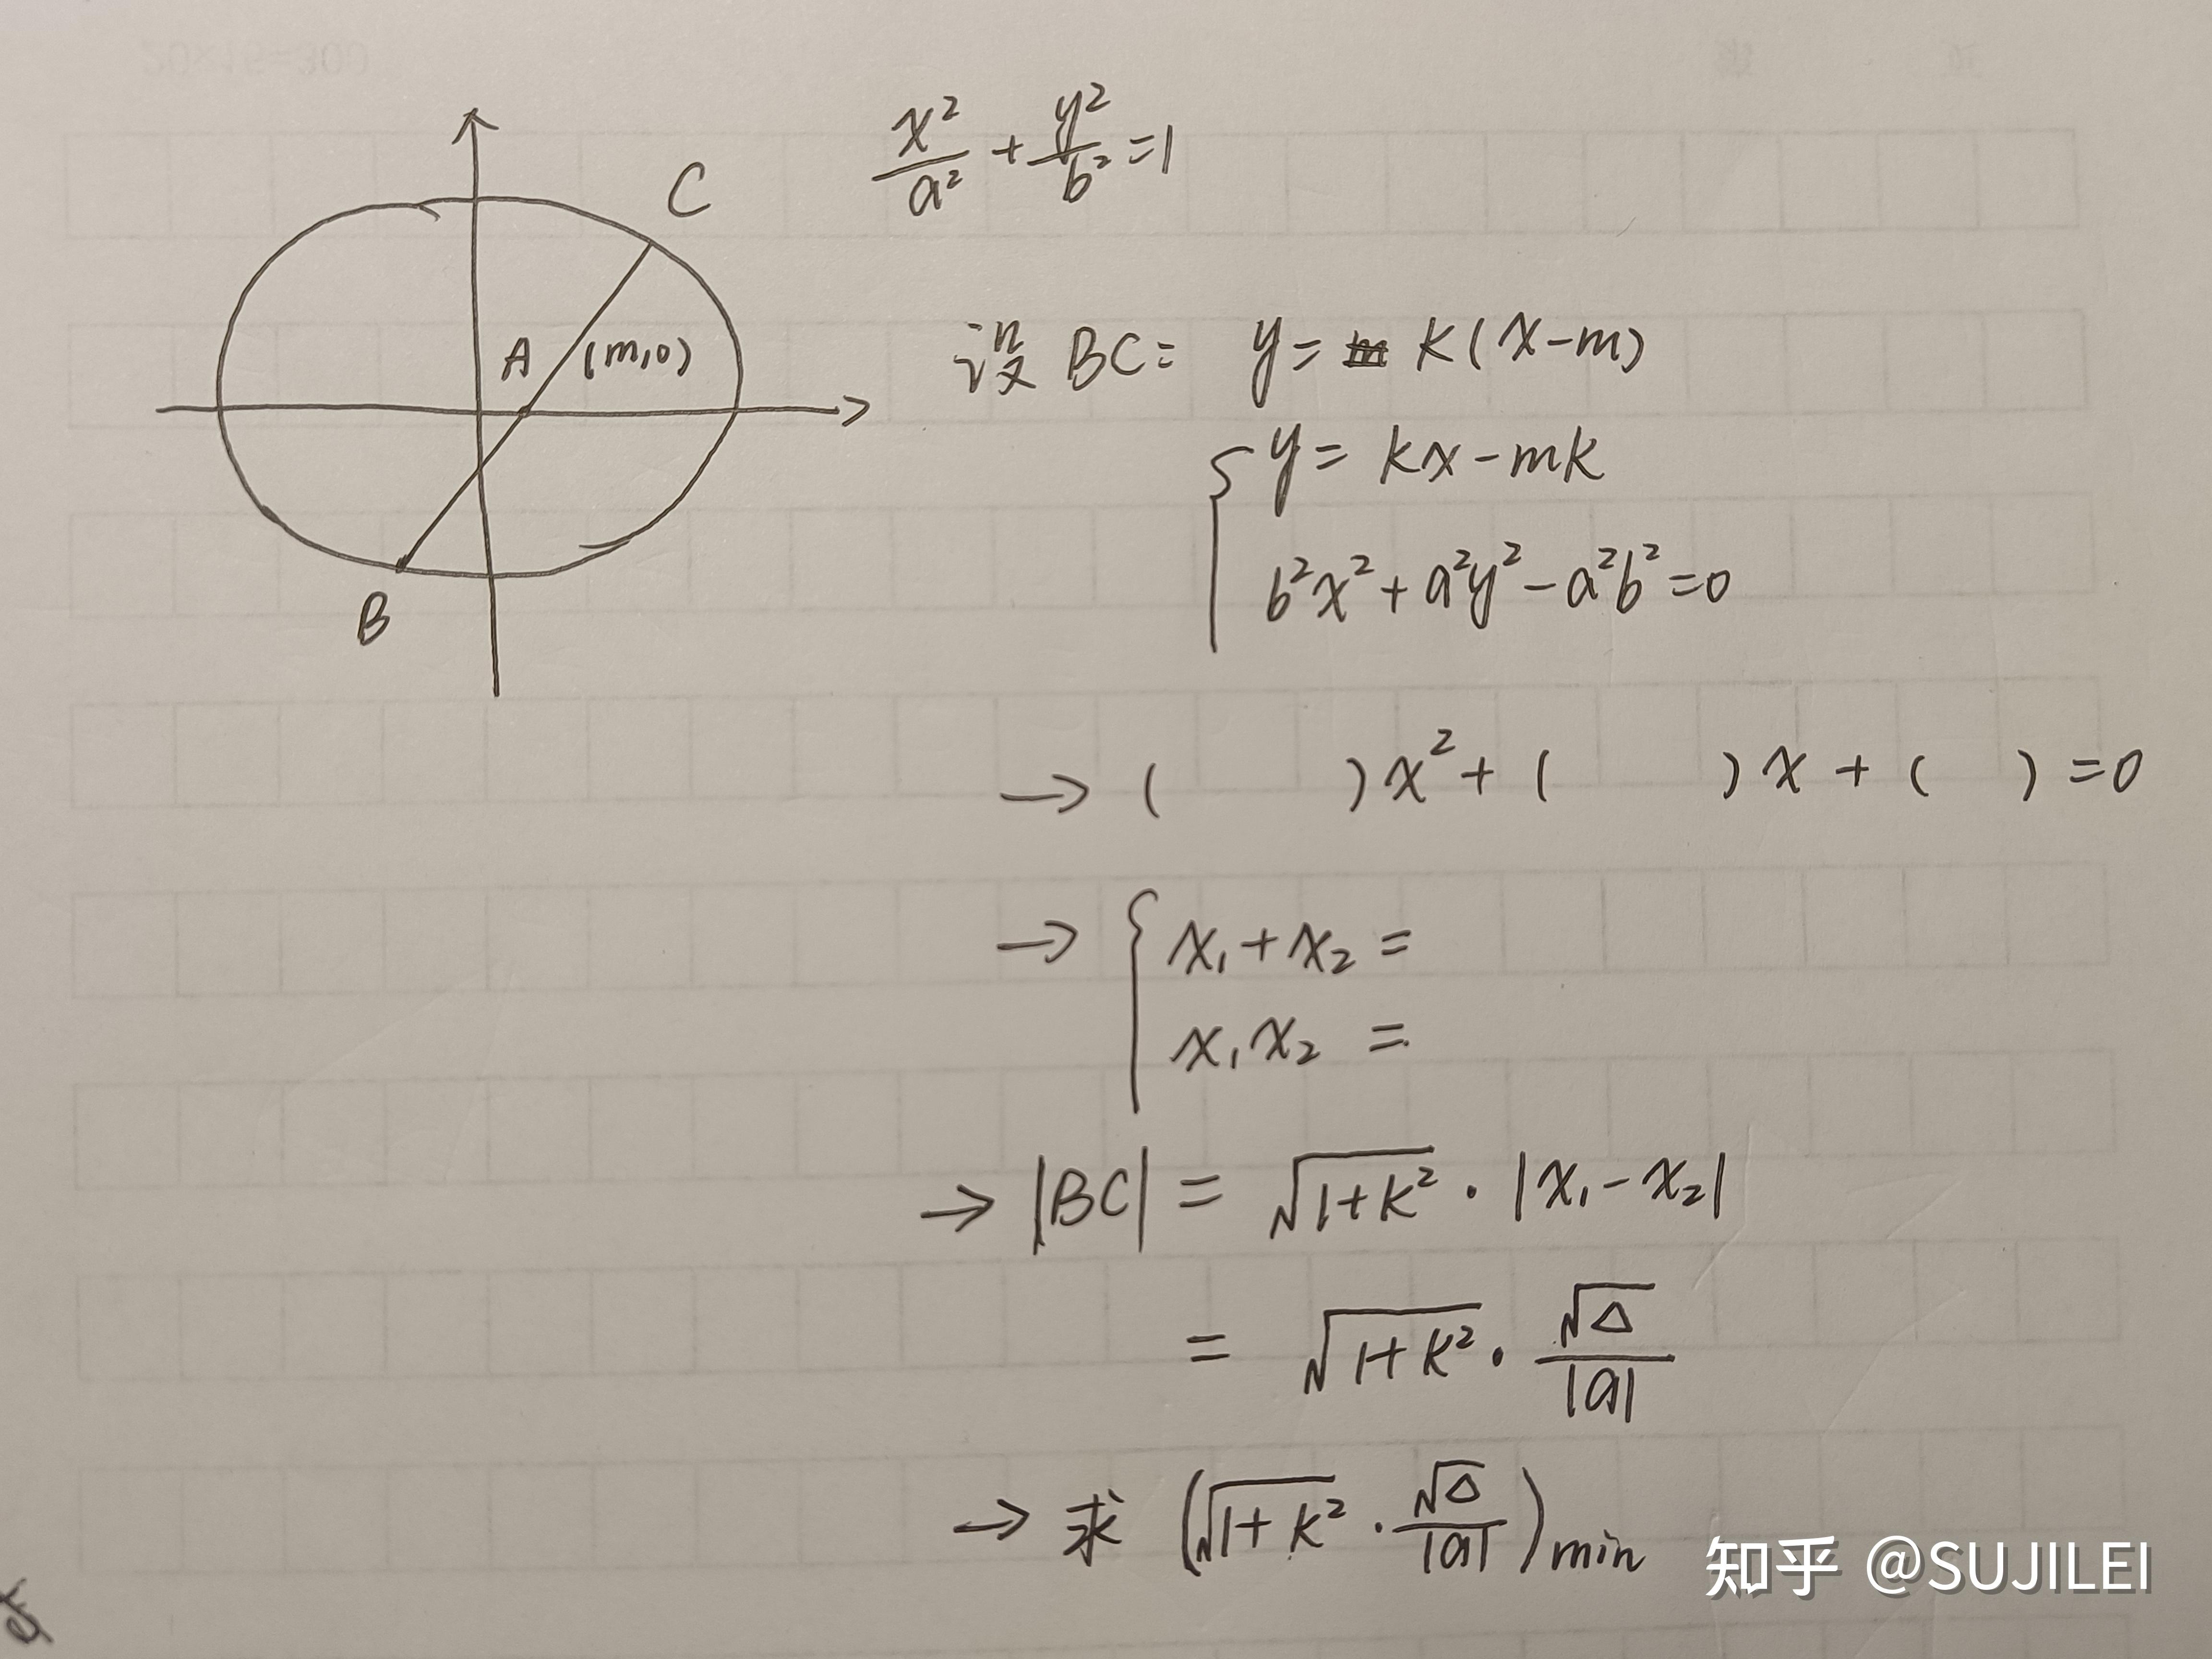 x²/a² + y²/b² = 1
C
A (m,0)
B
设 BC: y = k(x-m)
{ y = kx - mk
b²x² + a²y² - a²b² = 0
→ ( )x² + ( )x + ( ) = 0
→ { x₁ + x₂ =
x₁x₂ =
→ |BC| = √(1+k²) · |x₁ - x₂|
= √(1+k²) · √Δ/|a|
→ 求 (√(1+k²) · √Δ/|a|)min
知乎 @SUJILEI